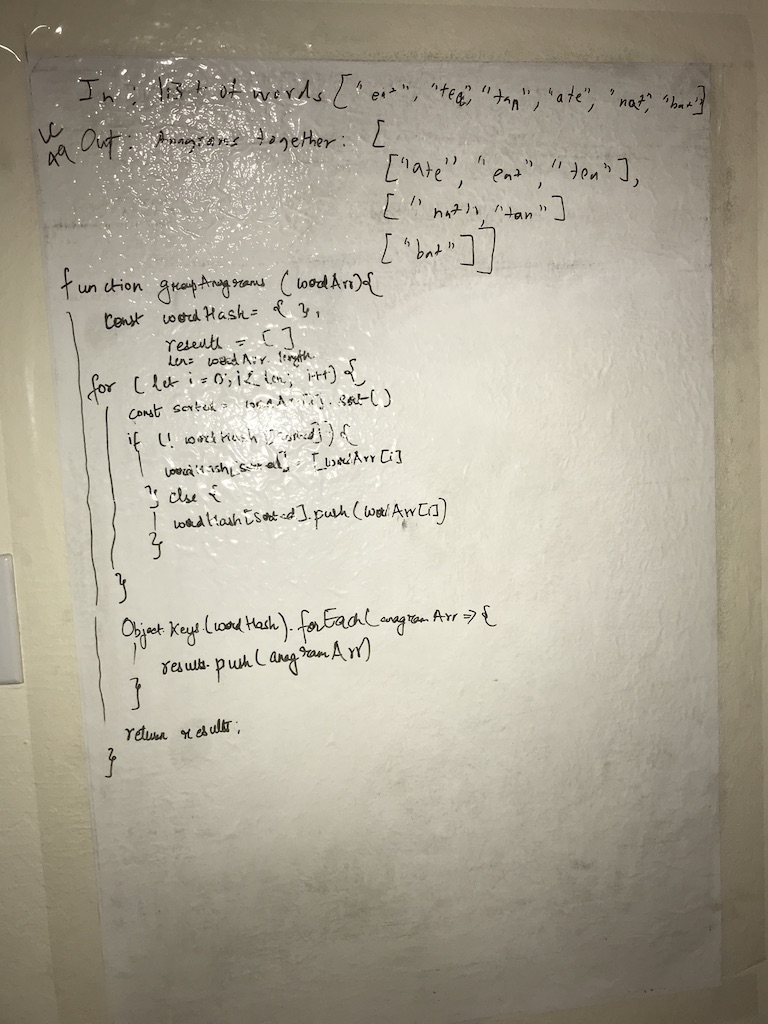 In : list of words ["eat", "tea", "tan", "ate", "nat", "bat"]
LC
49
Out : Anagrams together : [
["ate", "eat", "tea"],
["nat", "tan"]
["bat"]]
function groupAnagrams (wordArr){
const wordHash = { },
result = [ ]
len = wordArr.length
for (let i = 0; i < len; i++) {
const sorted = wordArr[i].sort()
if (! wordHash [sorted]) {
wordHash[sorted] = [wordArr[i]
} else {
wordHash[sorted].push(wordArr[i])
}
}
Object.keys(wordHash).forEach(anagramArr => {
results.push(anagramArr)
}
return results;
}